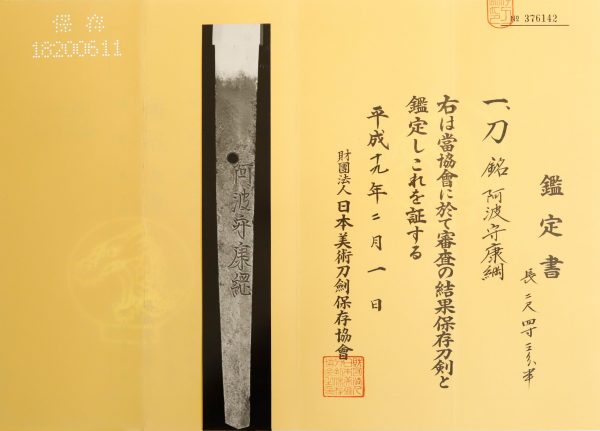 № 376142
鑑定書
一、刀 銘 阿波守康綱
長 二尺四寸三分半
右は當協會に於て審査の結果保存刀剣と
鑑定しこれを証する
平成十九年二月一日
財團法人 日本美術刀劍保存協會
阿波守康綱
保存
18200611